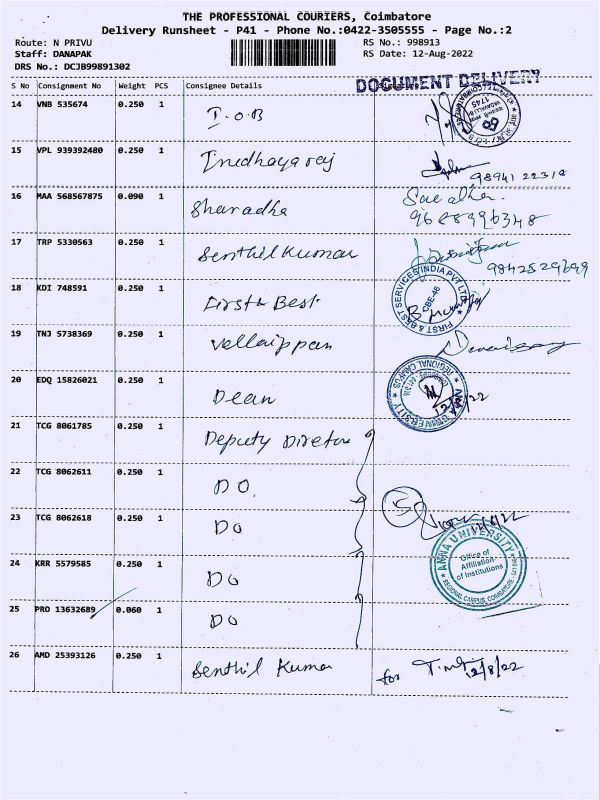 THE PROFESSIONAL COURIERS, Coimbatore
Delivery Runsheet - P41 - Phone No.:0422-3505555 - Page No.:2
Route: N PRIVU
RS No.: 998913
Staff: DANAPAK
RS Date: 12-Aug-2022
DRS No.: DCJB99891302
S No Consignment No Weight PCS Consignee Details
DOCUMENT DELIVERY
14 VNB 535674 0.250 1 I.O.B
1745
15 VPL 939392480 0.250 1 Irudhayaraj
98941 22318
16 MAA 568567875 0.090 1 Sharadha
9688996348
17 TRP 5330563 0.250 1 Senthil Kumar
9842529699
18 KDI 748591 0.250 1 First & Best
FIRST & BEST SERVICES INDIA PVT LTD
CBE-46
19 TNJ 5738369 0.250 1 Vellaippan
20 EDQ 15826021 0.250 1 Dean
REGIONAL CAMPUS
21 TCG 8061785 0.250 1 Deputy Director
22 TCG 8062611 0.250 1 DO
23 TCG 8062618 0.250 1 DO
24 KRR 5579585 0.250 1 DO
ANNA UNIVERSITY
Office of
Affiliation
of Institutions
REGIONAL CAMPUS, COIMBATORE
25 PRO 13632689 0.060 1 DO
26 AMD 25393126 0.250 1 Senthil Kumar
for 12/8/22